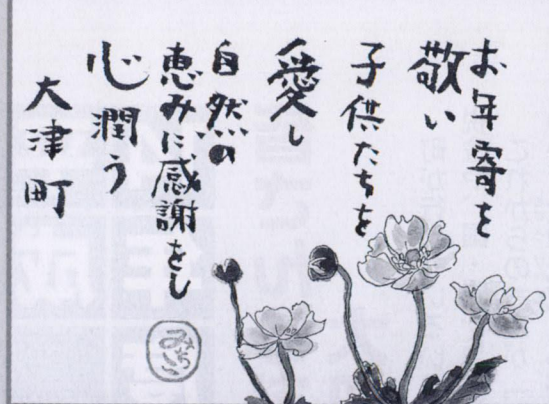 お年寄を
敬い
子供たちを
愛し
自然の
恵みに感謝をし
心潤う
大津町
みちこ